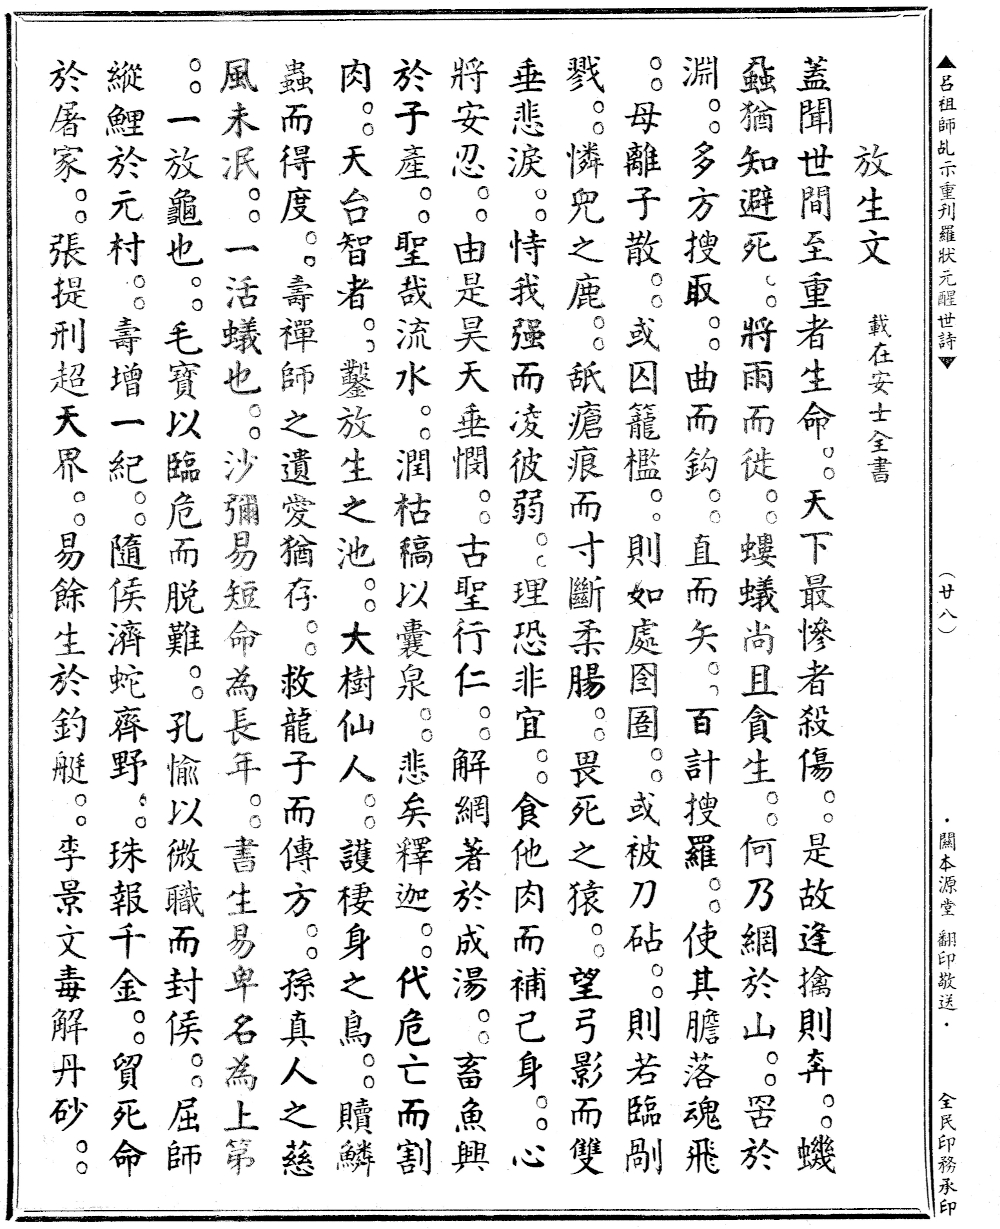 ▲呂祖師乩示重刊羅狀元醒世詩▼ （廿八） ・關本源堂 翻印敬送・ 全民印務承印
放生文 載在安士全書
蓋聞世間至重者生命。。天下最慘者殺傷。。是故逢擒則奔。。蟣
蝨猶知避死。。將雨而徙。。螻蟻尚且貪生。。何乃網於山。。罟於
淵。。多方搜取。。曲而鈎。。直而矢。。百計搜羅。。使其膽落魂飛
。。母離子散。。或囚籠檻。。則如處囹圄。。或被刀砧。。則若臨剮
戮。。憐兒之鹿。。舐瘡痕而寸斷柔腸。。畏死之猿。。望弓影而雙
垂悲淚。。恃我强而凌彼弱。。理恐非宜。。食他肉而補己身。。心
將安忍。。由是昊天垂憫。。古聖行仁。。解網著於成湯。。畜魚興
於子產。。聖哉流水。。潤枯稿以囊泉。。悲矣釋迦。。代危亡而割
肉。。天台智者。。鑿放生之池。。大樹仙人。。護棲身之鳥。。贖鱗
蟲而得度。。壽禪師之遺愛猶存。。救龍子而傳方。。孫真人之慈
風未泯。。一活蟻也。。沙彌易短命為長年。。書生易卑名為上第
。。一放龜也。。毛寶以臨危而脱難。。孔愉以微職而封侯。。屈師
縱鯉於元村。。壽增一紀。。隨侯濟蛇齊野。。珠報千金。。貿死命
於屠家。。張提刑超天界。。易餘生於釣艇。。李景文毒解丹砂。。